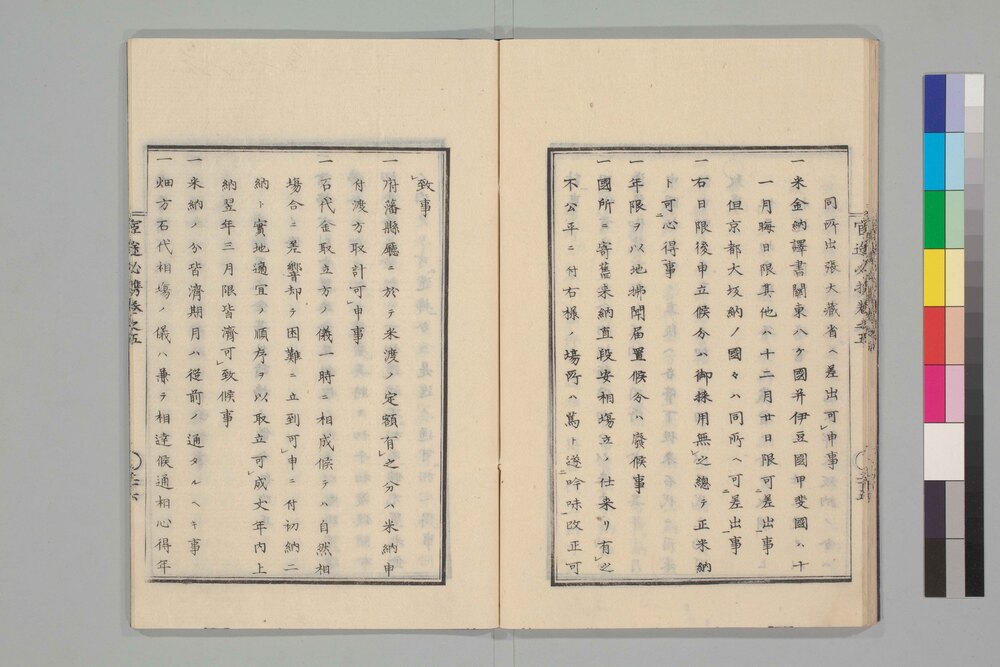 同所出張大藏省ヘ差出可レ申事
一米金納譯書關東八ケ國幷伊豆國甲斐國ハ十
一月晦日限其他ハ十二月廿日限可二差出一事
但京都大坂納ノ國々ハ同所ヘ可二差出一事
一右日限後申立候分ハ御採用無レ之總テ正米納
ト可二心得一事
一年限ヲ以地拂聞届置候分ハ廢候事
一國所ニ寄舊來納直段安相塲立ノ仕來リ有レ之
不公平ニ付右樣ノ塲所ハ篤ト遂二吟味一改正可
レ致事
一府藩縣廳ニ於テ米渡ノ定額有レ之分ハ米納申
付渡方取計可レ申事
一石代金取立方ノ儀一時ニ相成候テハ自然相
塲合ニ差響却テ困難ニ立到可レ申ニ付切納二
納ト實地適宜ノ順序ヲ以取立可レ成丈年內上
納翌年三月限皆濟可レ致候事
一米納ノ分皆濟期月ハ從前ノ通タルヘキ事
一畑方石代相塲ノ儀ハ兼テ相達候通相心得年
官途必携卷之五
三十五
官途必携卷之五
三十六